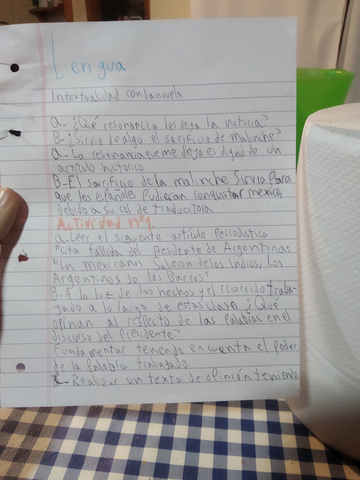 Lengua
Intextualidad con la novela
a- ¿Qué resonancia los deja la noticia?
B- ¿Sirvio de algo el sacrificio de malinche?
a- La resonancia que me deja es digno de un
articulo historico
B- El sacrificio de la malinche Sirvio para
que los españoles pudieran conquistar mexico
debido a su rol de traductora
Actividad n°1
a- Leer el siguiente artículo periodistico
"Cita fallida del Presidente de Argentina:
"Los mexicanos Salieron de los Indios, los
Argentinos de los Barcos"
B- A la luz de los hechos y el recorrido traba-
jado a lo largo de estas clases ¿Qué
opinan al respecto de las palabras en el
discurso del Presidente?
Fundamentar teniendo en cuenta el poder
de la Palabra trabajado
C- Realizar un texto de opinión teniendo